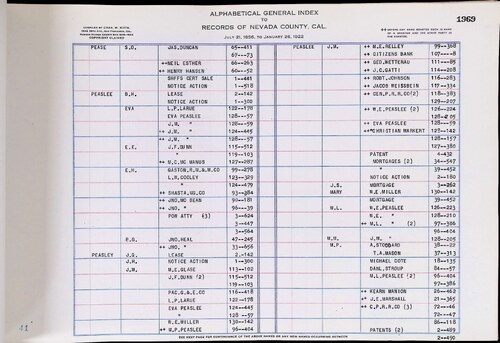 ALPHABETICAL GENERAL INDEX
TO
RECORDS OF NEVADA COUNTY, CAL.
1969
JULY 21, 1856, TO JANUARY 26, 1922
PEASE S.D. JAS.DUNCAN 65--411
67--73
++NEIL ESTHER 66--263
++ HENRY HANSEN 60--52
SHFFS CERT SALE 1--441
NOTICE ACTION 1--518
PEASLEE B.H. LEASE 2--142
NOTICE ACTION 1--300
EVA L.P.LARUE 122--178
EVA PEASLEE 128--57
J.M. " 128--59
++ J.M. " 124--445
++ J.M. " 128--57
E.E. J.F.DUNN 115--512
" 119--103
++ M.C.MC MANUS 127--287
E.H. GASTON,R.M.&M.CO 99--278
L.H.COOLEY 123--329
124--479
++ SHASTA,MG.CO 93--384
++ JNO.MC BEAN 90--181
++ JNO. " 96--39
POW ATTY (3) 3--624
3--447
3--564
P.G. JNO.NEAL 47--245
++ JNO. " 33--656
PEASLEY J.G. LEASE 2--142
J.H. NOTICE ACTION 1--300
J.M. M.E.GLASE 113--102
J.F.DUNN (2) 115--512
119--103
PAC.G.&E.CO 116--418
L.P.LARUE 122--178
EVA PEASLEE 124--445
" 128--57
W.E.MILLER 130--142
++ M.P.PEASLEE 96--404
PEASLEE J.M. ++ M.E.KELLEY 99--368
++ CITIZENS BANK 107----8
++ GEO.WETTERAU 111--85
++ J.C.GATTI 114--208
++ ROBT.JOHNSON 116--283
++ JACOB WEISSBEIN 117--334
++ CEN.P.R.R.CO(2) 118--383
129--207
++ W.E.PEASLEE (2) 126--204
128--205
++ EVA PEASLEE 128--59
++CHRISTIAN MARKERT 125--142
128--157
127--380
PATENT 4-432
MORTGAGES (2) 34--547
" 39--452
NOTICE ACTION 2--180
J.S. MORTGAGE 3--262
MARY W.E.MILLER 130--142
MORTGAGE 39--452
M.L. W.E.PEASLEE 126--223
W.E. " 128--210
++ M.L. " (2) 97--386
96--404
M.N. J.M. " 128--205
M.P. A.STODDARD 38--22
T.A.MASON 37--313
MICHAEL COTE 18--135
DANL.STROUP 84--57
M.L.PEASLEE (2) 96--404
97--386
++ KEARN MANION 26--462
++ J.E.MARSHALL 21--365
++ C.P.R.R.CO (3) 72--46
72--47
86--118
PATENTS (2) 2--489
2--490